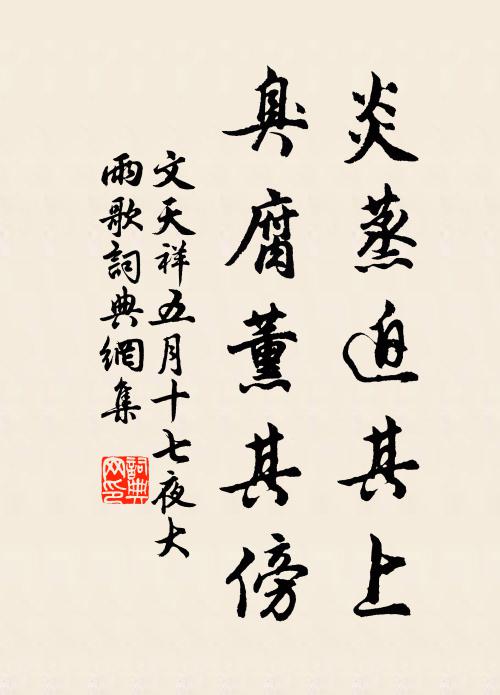 炎蒸迫其上
臭腐薰其傍
文天祥五月十七夜大
雨歌詞典網集
詞典网印